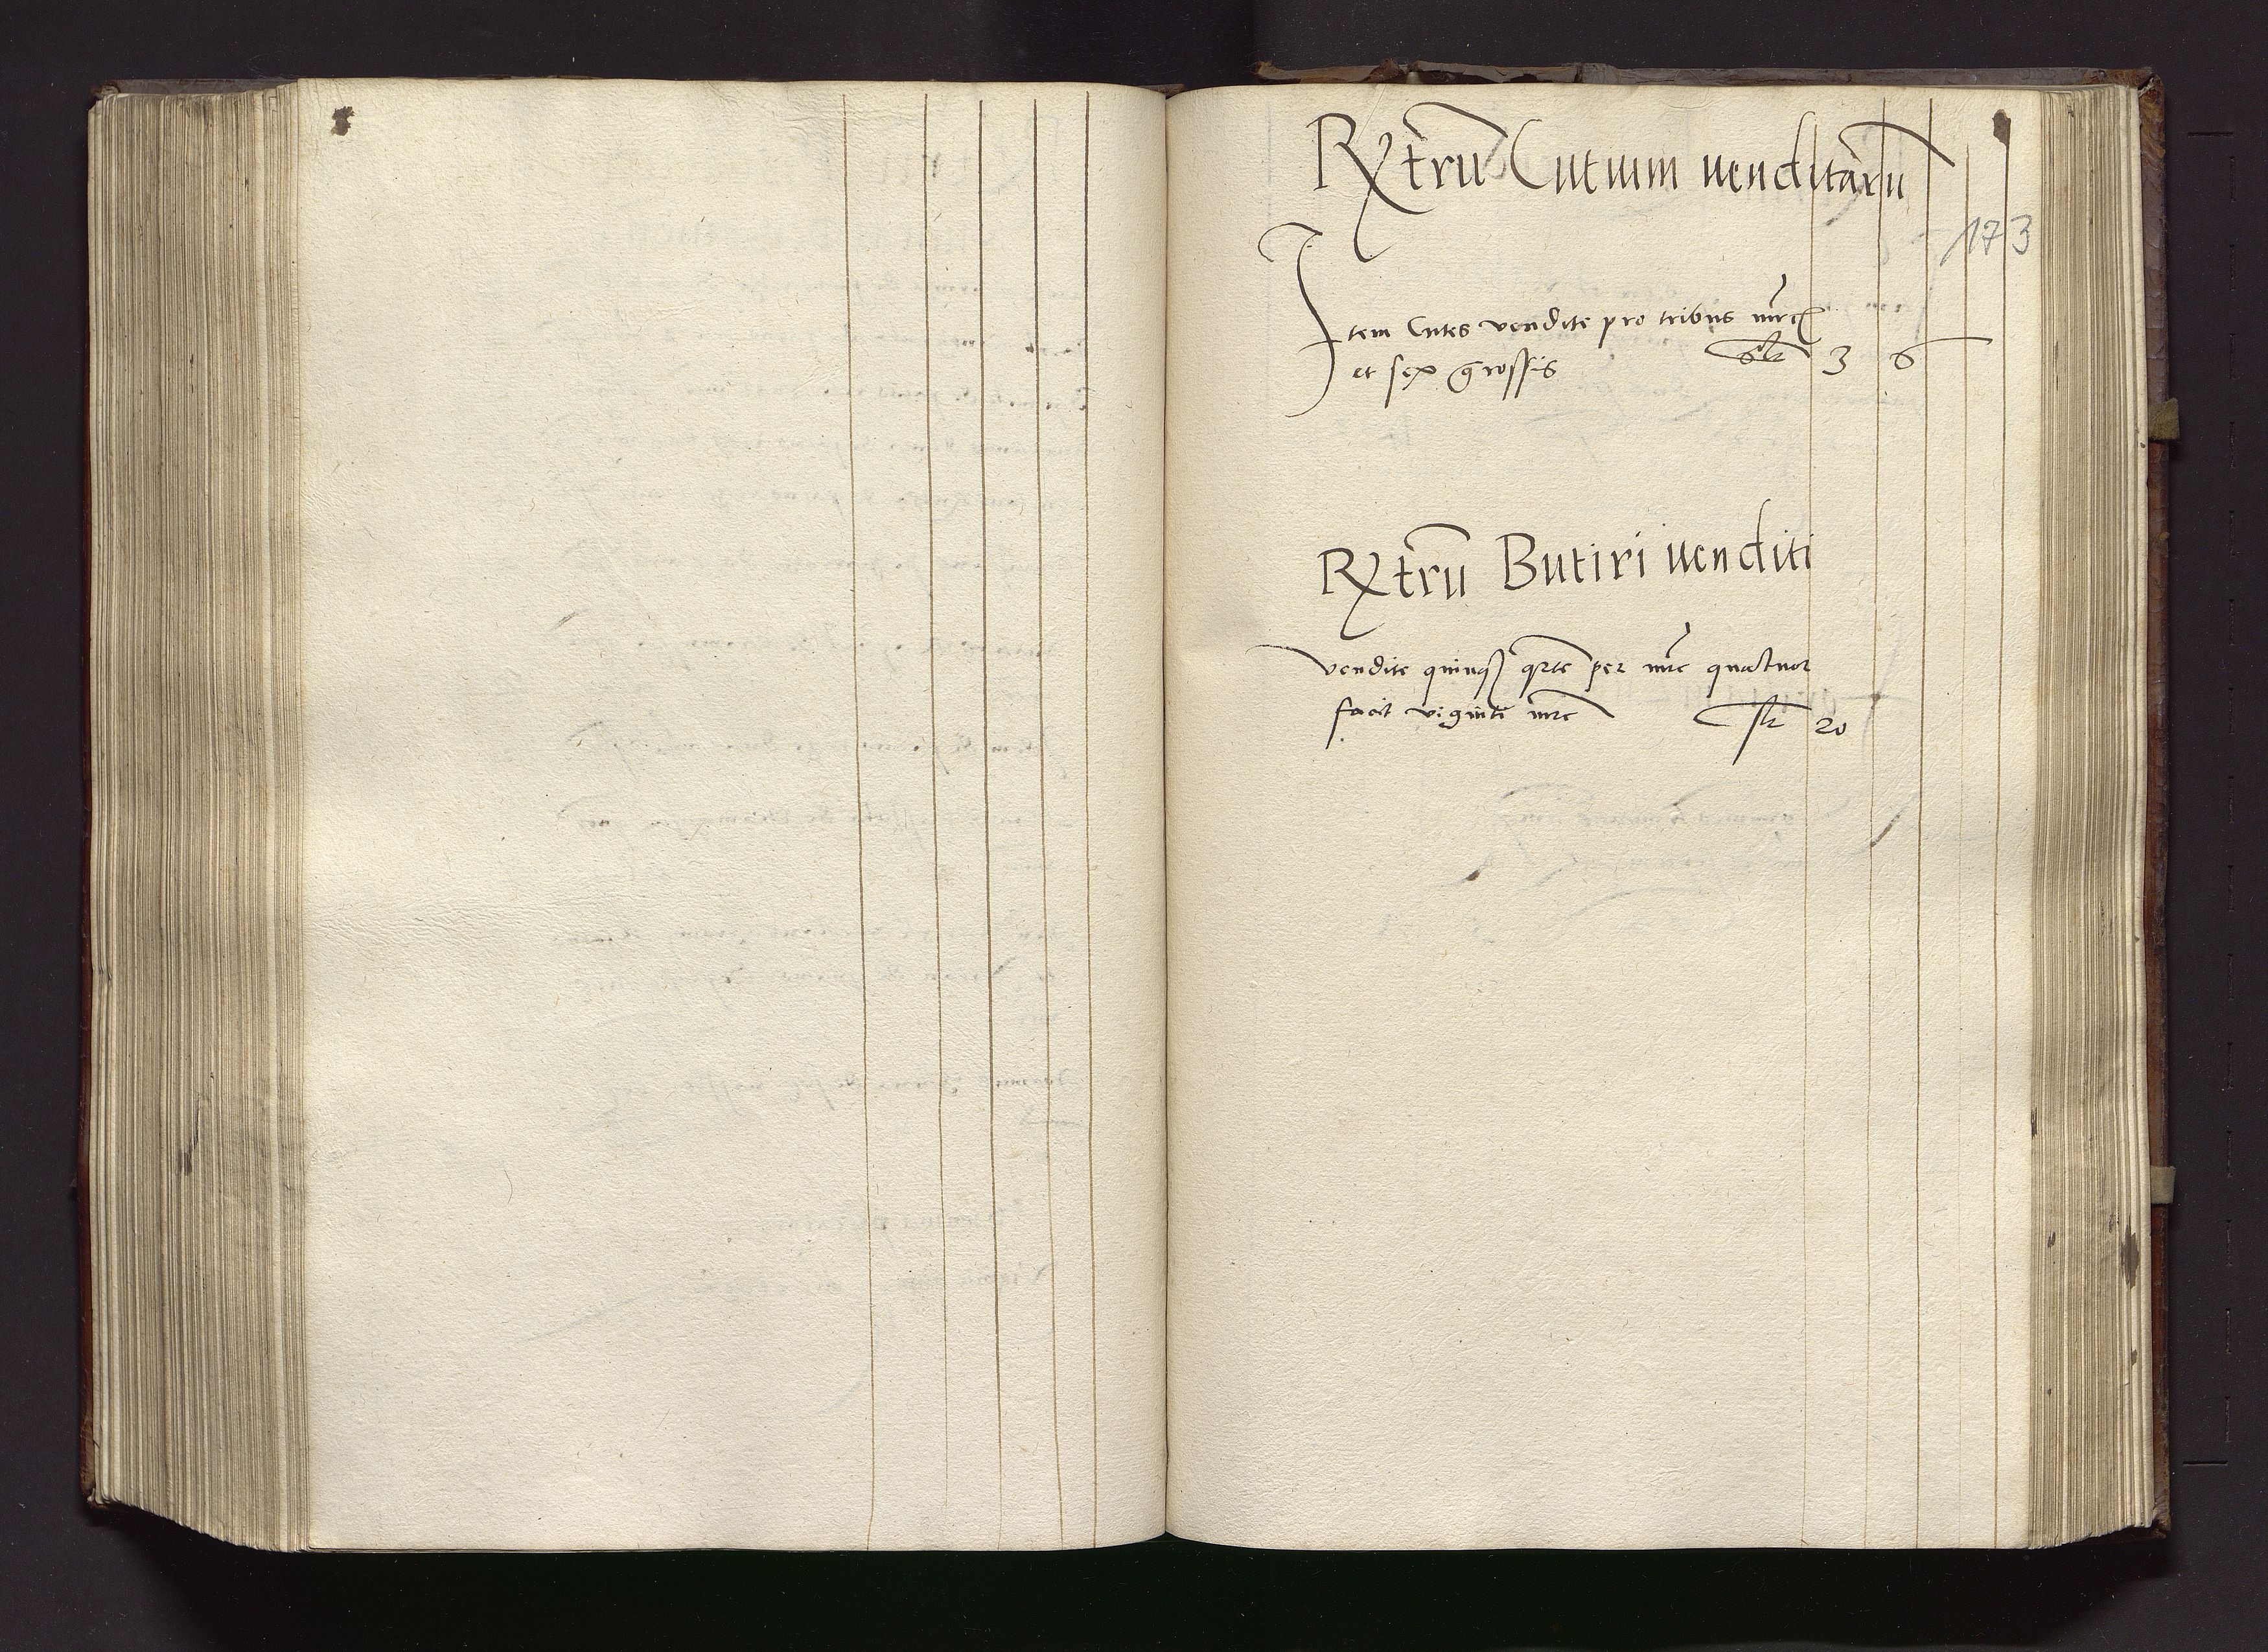 Rx̄trū Cutium venditarū
173
Item Cutes vendite pro tribus mrc
et sex grossis 3 6
Rx̄trū Butiri venditi
vendite quinqȝ qrte per mrc quatuor
facit viginti mrc 20